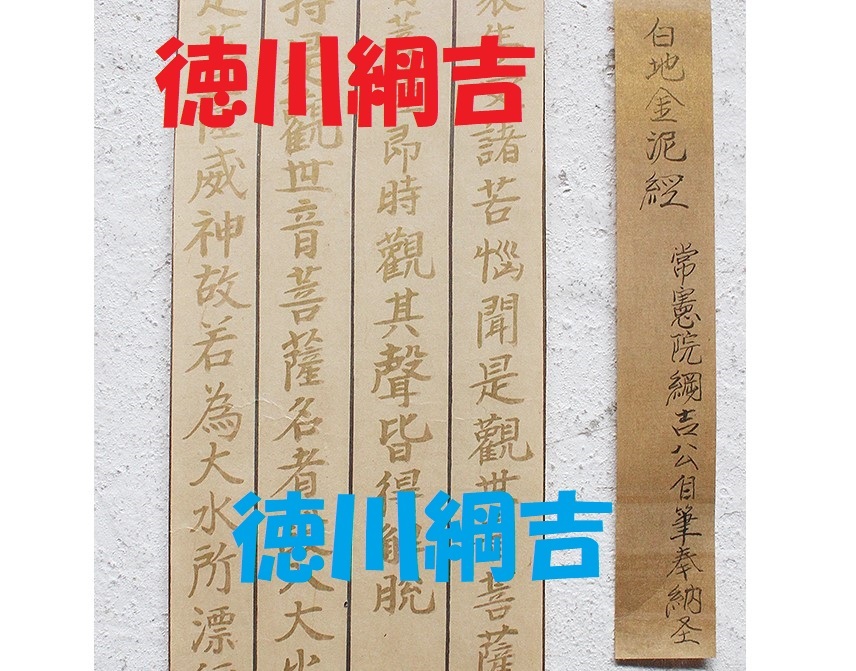 徳川綱吉
徳川綱吉
白地金泥經
常憲院綱吉公自筆奉納圣
生 諸苦惱聞是觀世 菩薩
菩 即時觀其聲皆得解脫
持是觀世音菩薩名者 入大火
是菩薩威神故若為大水所漂